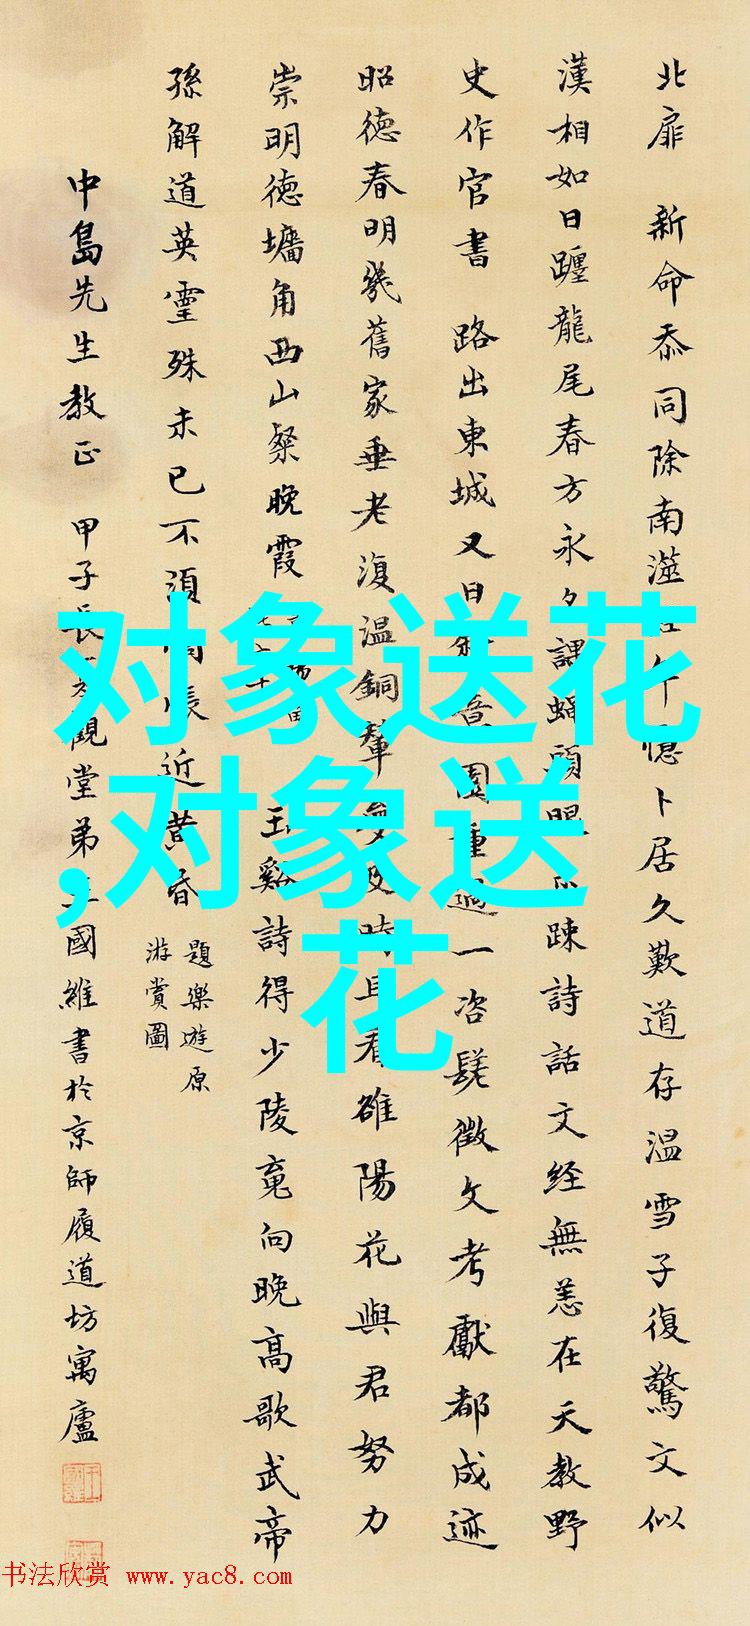 北扉 新命忝同除南澨
憶卜居久歎道存温雪子復驚文似
漢相如日躔龍尾春方永夕課蝸頭眼
疎詩話文经無恙在天教野
史作官書 路出東城又日
園重過一咨髭徵文考獻都成迹
昭德春明幾舊家垂老復温銅輦
及時且看雒陽花與君努力
崇明德墉角西山粲晚霞
玉谿詩得少陵竟向晚高歌武帝
孫解道英靈殊未已不須
悵近黄昏
題樂遊原
游賞圖
中島先生教正 甲子長
觀堂弟王國維書於京師履道坊寓廬
对象送花
,对象送
花
书法欣赏 www.yac8.com